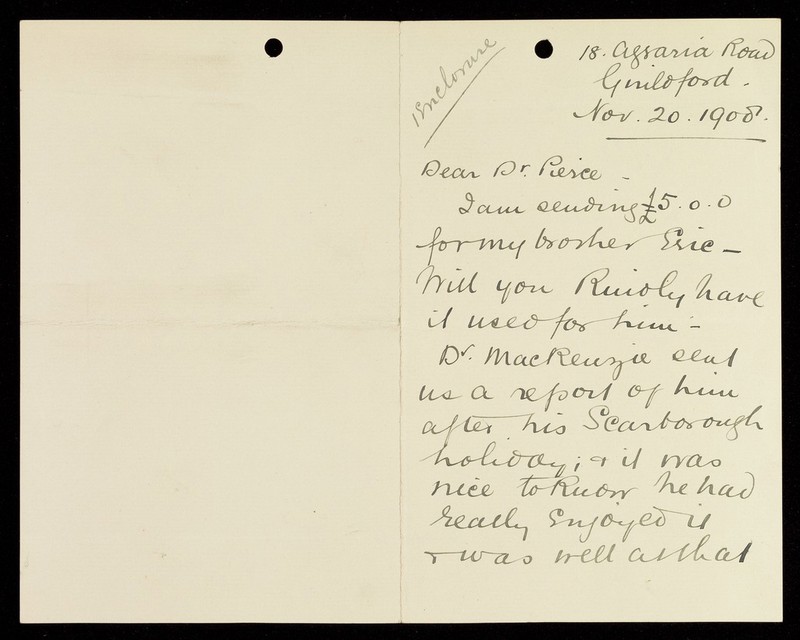 1 Enclosure
18. Agraria Road
Guildford.
Nov. 20. 1908.
Dear Dr. Pierce -
I am sending £5.0.0
for my brother Eric -
Will you kindly have
it used for him -
Dr. Mackenzie sent
us a report of him
after his Scarborough
holiday; & it was
nice to know he had
really enjoyed it
& was well at that